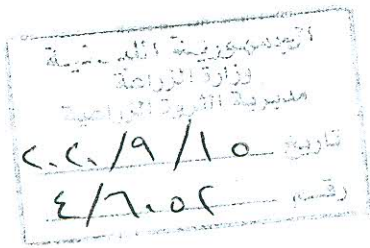 الجمهورية اللبنانية
وزارة الزراعة
مديرية الثروة الزراعية
تاريخ ٢٠٢٠/٩/١٥
رقم ٤/٦٠٥٢